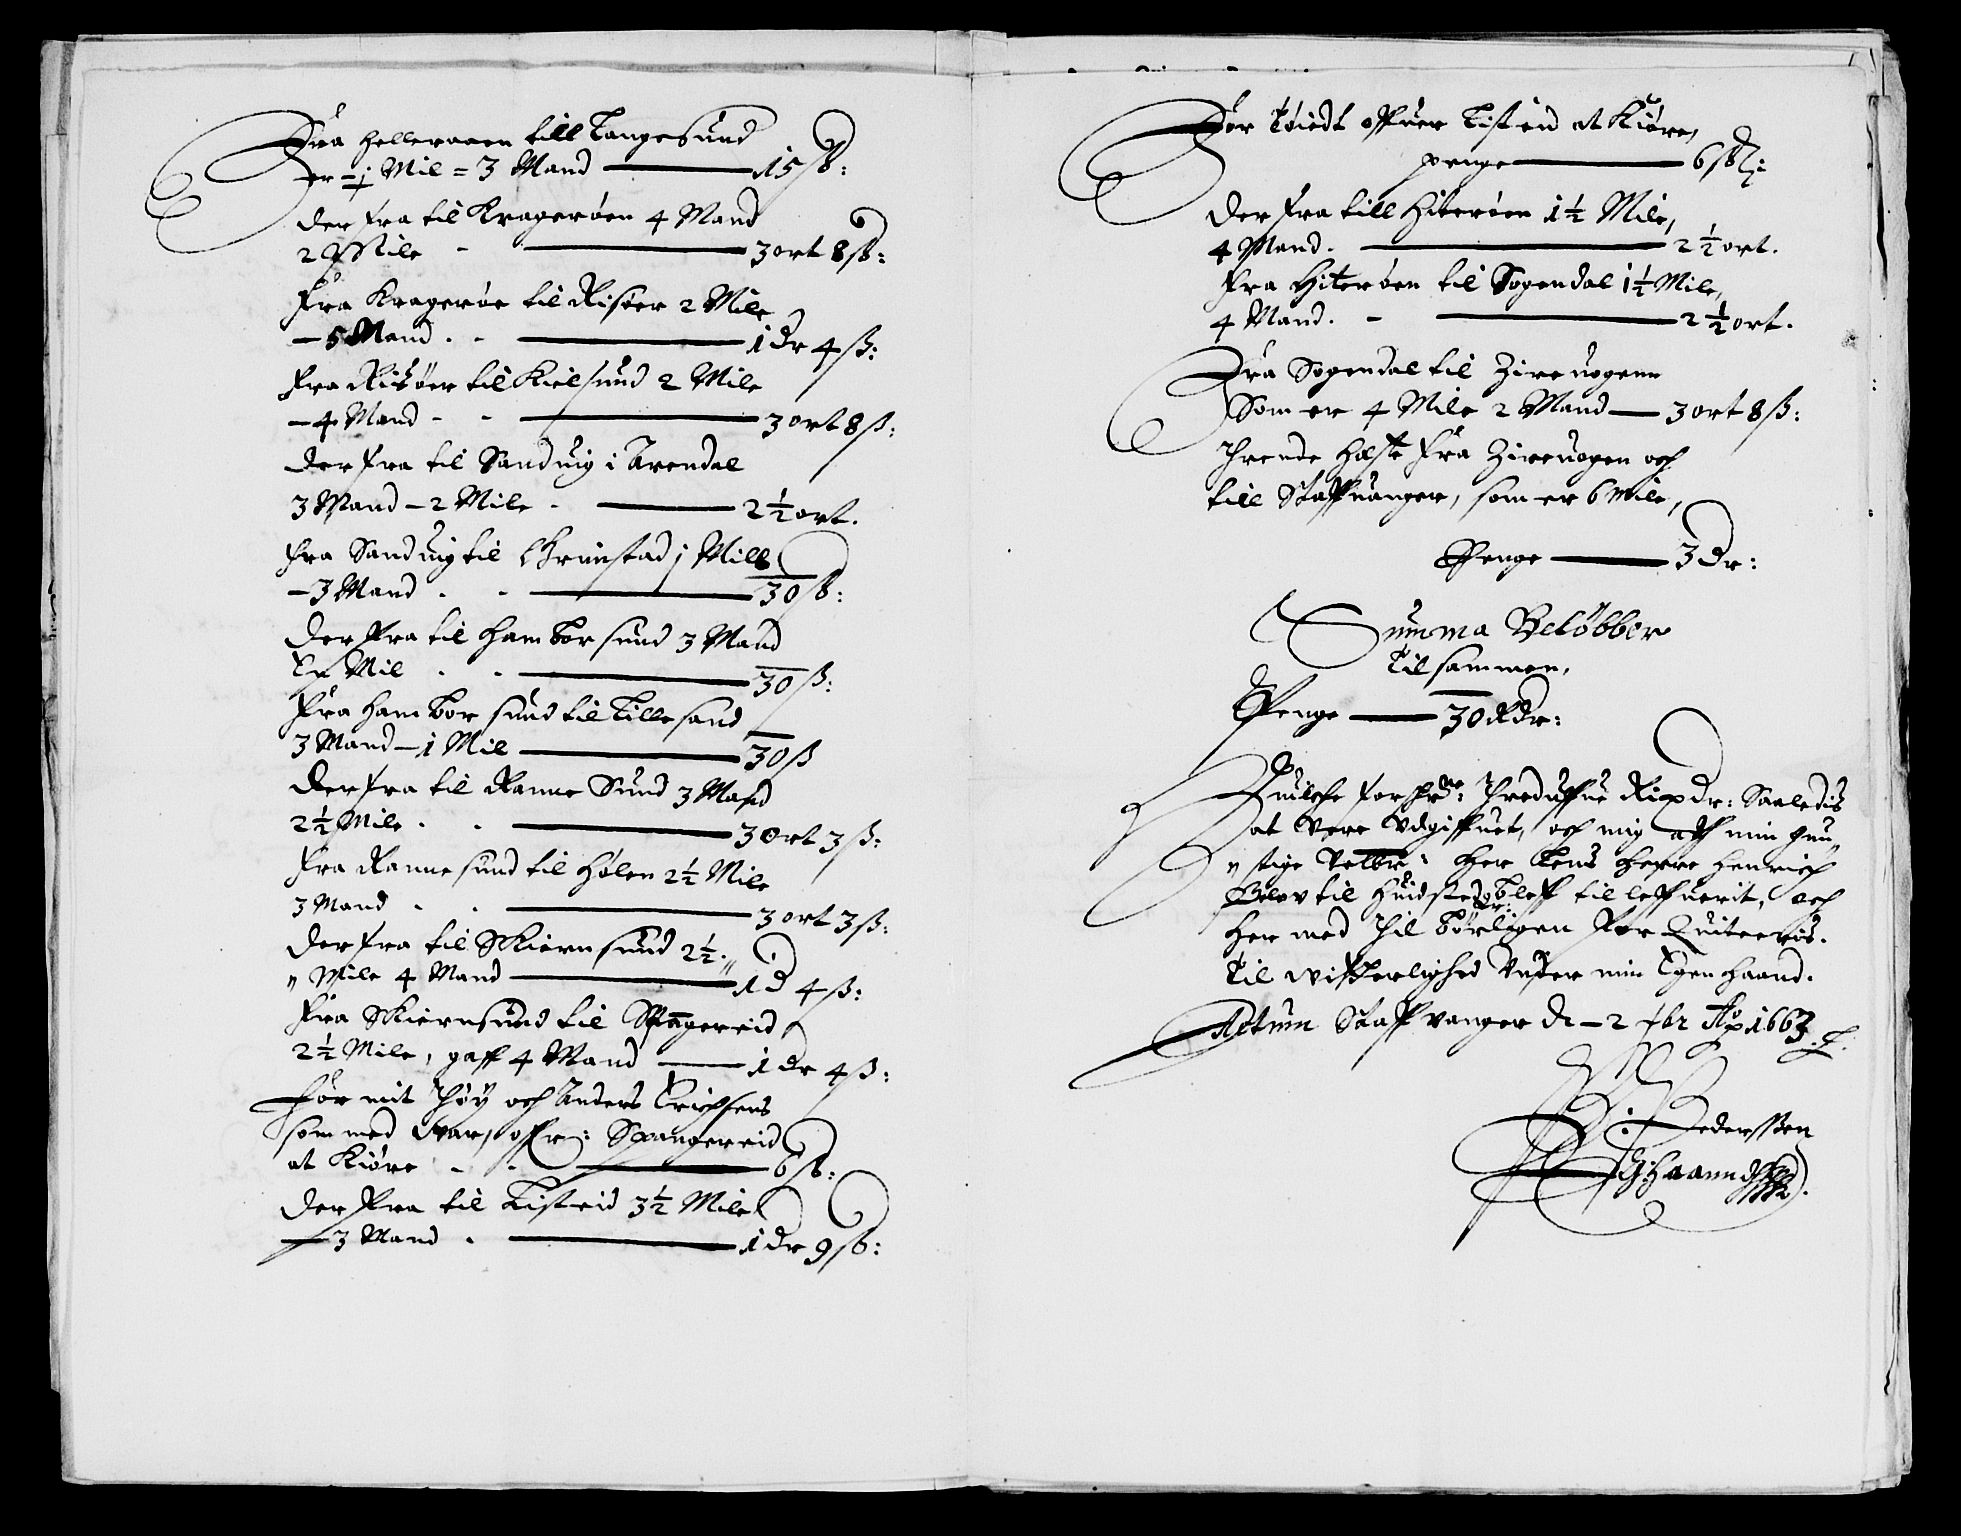 Fra Helleraaen till Langesund
er = j Mil = 3 Mand — 15 ß:
der fra til Kragerøen 4 Mand
2 Mile - — 3 ort 8 ß:
Fra Kragerøe til Risøer 2 Mile
— 5 Mand . - — 1 dr 4 ß:
Fra Risøer til Kielsund 2 Mile
— 4 Mand - - — 3 ort 8 ß:
der fra til Sanduig i Arendal
3 Mand — 2 Mile . — 2½ ort.
Fra Sanduig til Grimstad j Mill
— 3 Mand . - — 30 ß:
der fra til Hamborsund 3 Mand
En Mil . - — 30 ß:
Fra Hamborsund til Lillesand
3 Mand — 1 Mil — 30 ß
der fra til Ranne Sund 3 Mand
2½ Mile . . — 3 ort 3 ß:
Fra Rannesund til Hølen 2½ Mile
3 Mand . . — 3 ort 3 ß:
der fra til Skiernsund 2½ „
„ Mile 4 Mand — 1 d 4 ß:
Fra Skiernsund til Spangereid
2½ Mile, gaff 4 Mand — 1 dr 4 ß:
for mit Thøy och Anders Erichsens
som med war, ofr: Spangereid
at Kiøre - - — 6 ß:
der fra til Listeid 3½ Mile
— 3 Mand . — 1 dr 9 ß:
For Tøiedt offuer Listeid at Kiøre,
penge — 6 ß:
der fra till Hiterøen 1½ Mile,
4 Mand . — 2½ ort.
Fra Hiterøen til Sogendal 1½ Mile,
4 Mand . - — 2½ ort.
Fra Sogendal til Zireuogenn
Som er 4 Mile 2 Mand — 3 ort 8 ß:
Thrende Heste fra Zireuogen och
till Staffuanger, som er 6 Mile,
Penge — 3 dr:
Summa Beløbber
Tilsammen,
Penge — 30 Rdr:
Huilche forschr: Threduffue Rixdr: Saaledis
at vere Vdgiffuet, och mig aff min gun„
„stige Her Jens Herre Henrich
Belov til Huidsteds til leffuerit, och
her med Thil børligen for Quiteris.
Til witterlighed Vnder min Egen Haand.
Actum Staffvanger d – 2 7br Ao 1663.
Pederssøn
Eg: Haannd